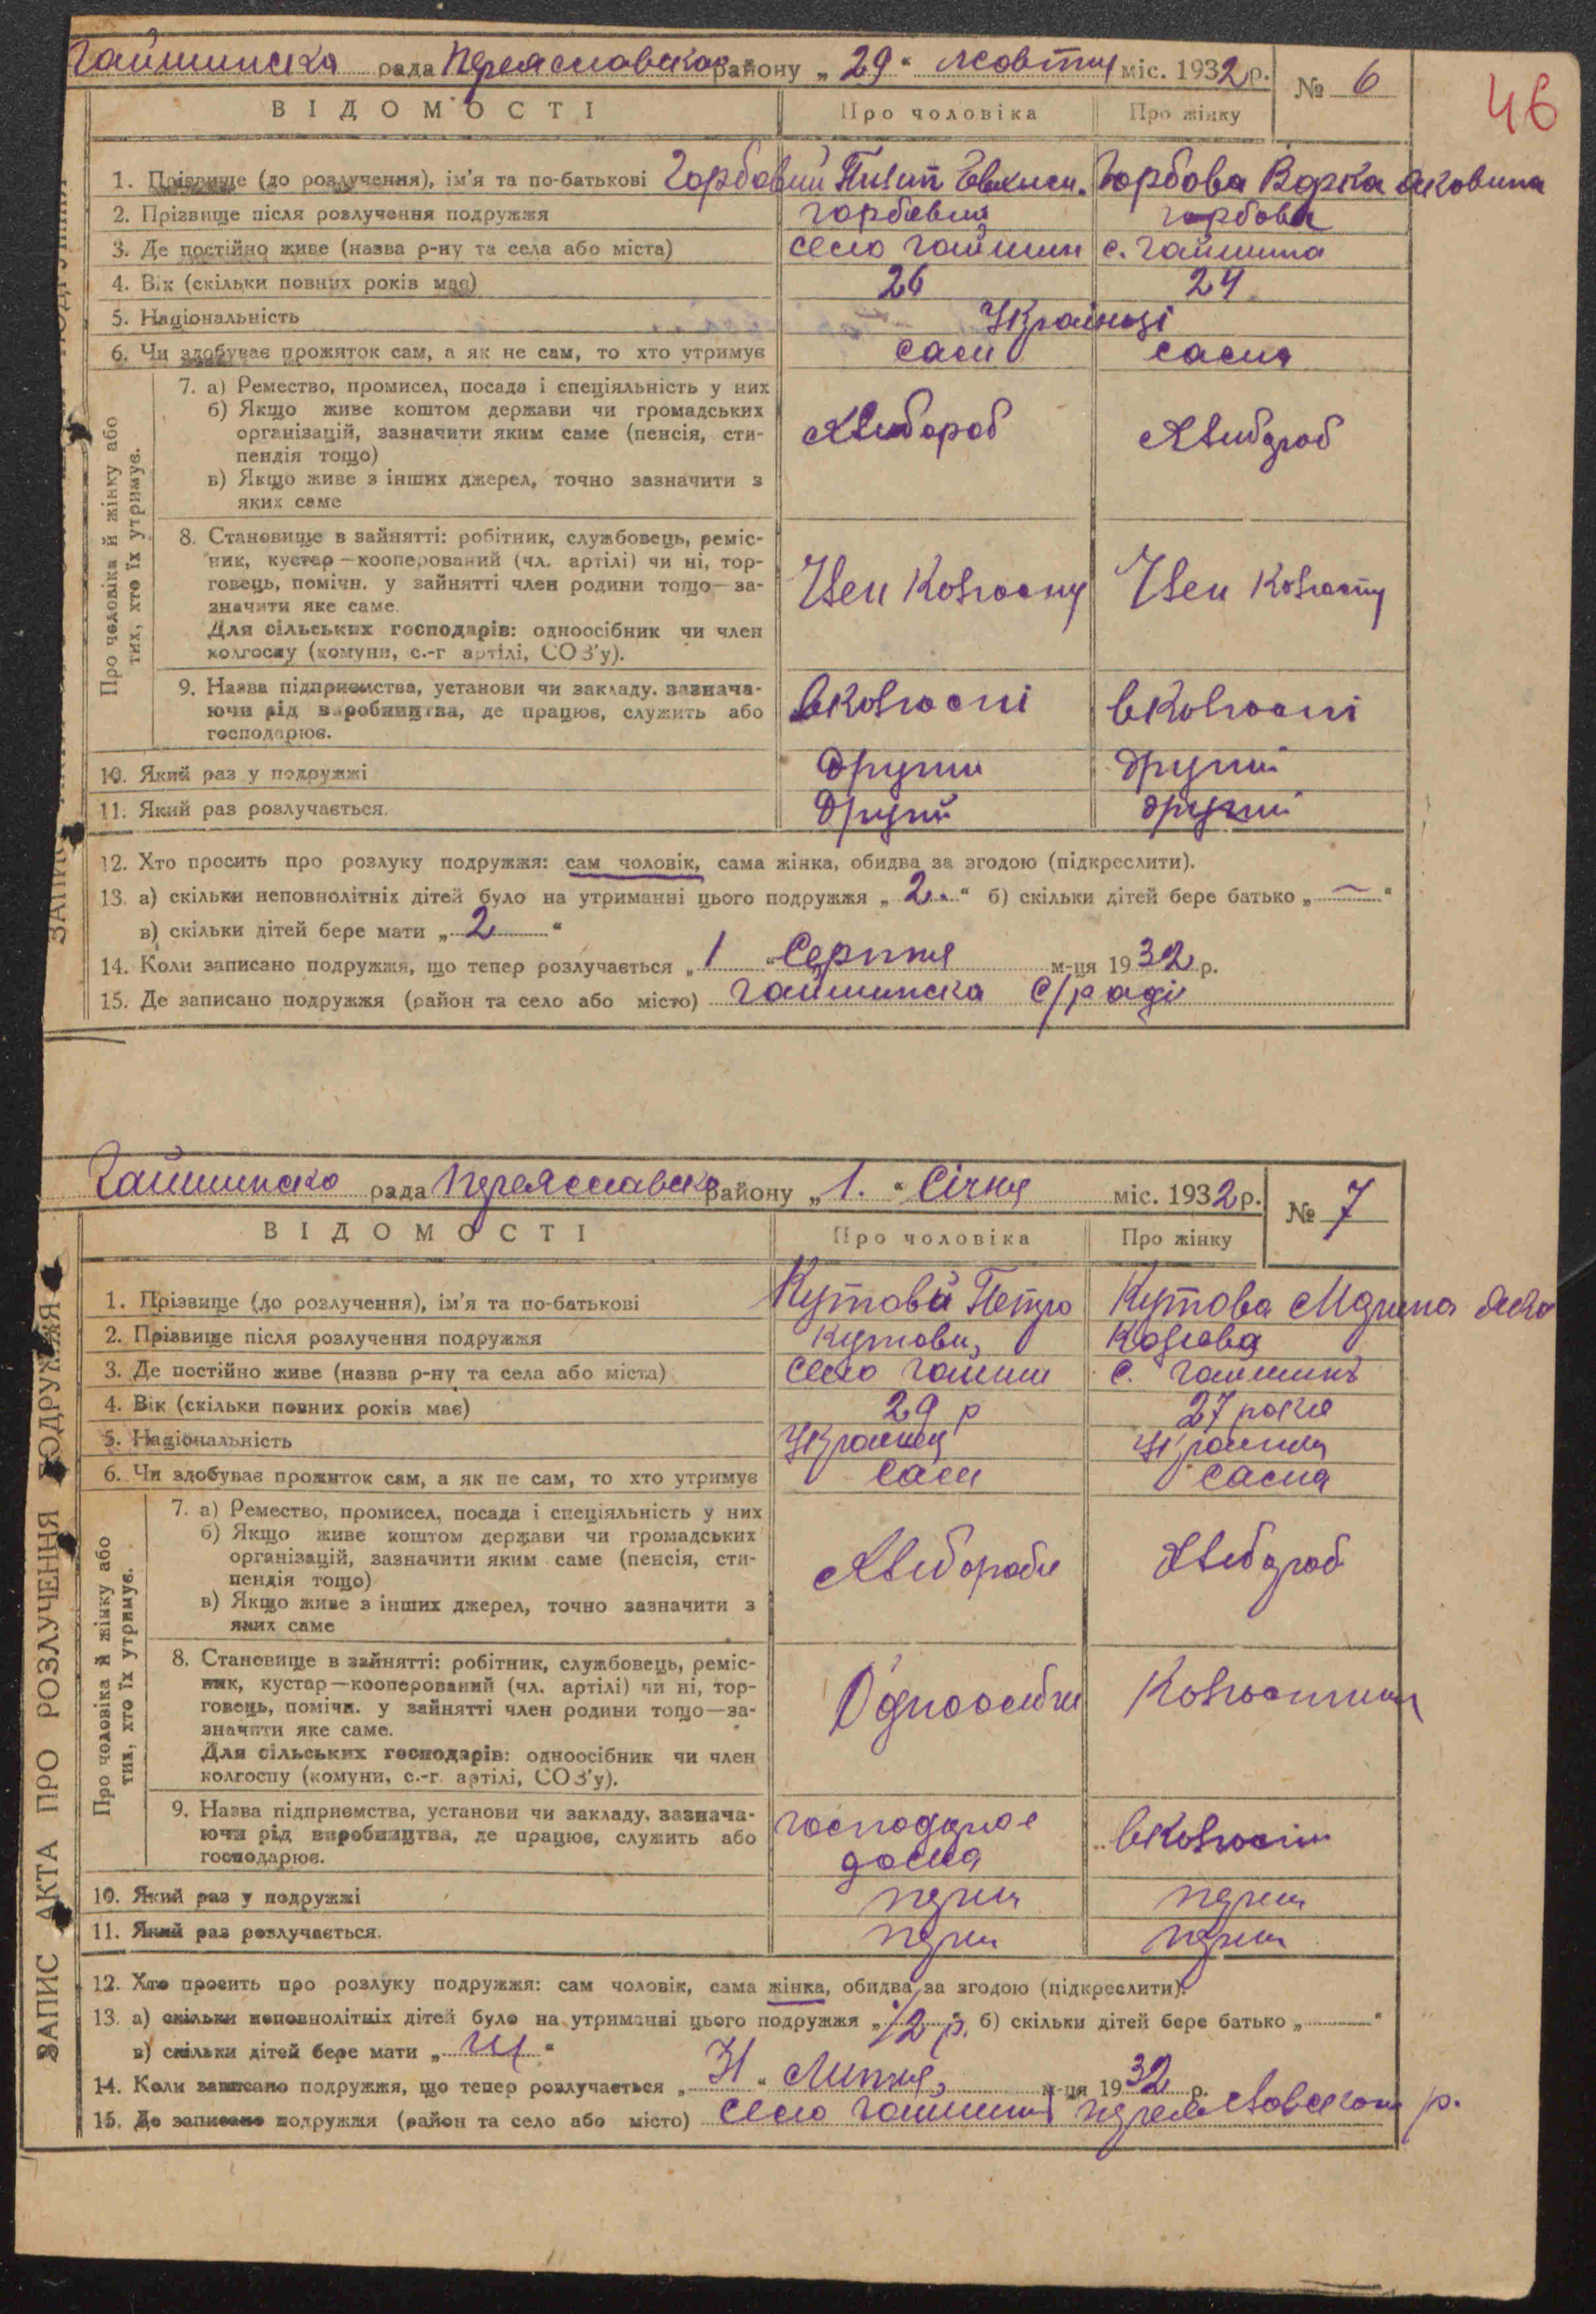 Гайшинска рада Переяславскаг району „ 29 “ Жовтня міс. 1932 р.
№ 6
46
ВІДОМОСТІ
Про чоловіка Про жінку
1. Прізвище (до розлучення), ім'я та по-батькові Горбовий Пилип Горбова Варка Яковина
2. Прізвище після розлучення подружжя Горбовий Горбова
3. Де постійно живе (назва р-ну та села або міста) село Гайшин с. Гайшина
4. Вік (скільки повних років має) 26 24
5. Національність Українці
6. Чи здобуває прожиток сам, а як не сам, то хто утримує сам сама
Про чоловіка й жінку або тих, хто їх утримує.
7. а) Ремество, промисел, посада і спеціяльність у них
б) Якщо живе коштом держави чи громадських
організацій, зазначити яким саме (пенсія, сти-
пендія тощо)
в) Якщо живе з інших джерел, точно зазначити з
яких саме
Хлибороб Хлибороб
8. Становище в зайнятті: робітник, службовець, реміс-
ник, кустар—кооперований (чл. артілі) чи ні, тор-
говець, помічн. у зайнятті член родини тощо—за-
значити яке саме.
Для сільських господарів: одноосібник чи член
колгоспу (комуни, с.-г артілі, СОЗ'у).
Член Колгоспу Член Колгоспу
9. Назва підприємства, установи чи закладу, зазнача-
ючи рід виробництва, де працює, служить або
господарює.
вколгоспі вколгоспі
10. Який раз у подружжі другий другий
11. Який раз розлучається. другий другий
12. Хто просить про розлуку подружжя: сам чоловік, сама жінка, обидва за згодою (підкреслити).
13. а) скільки неповнолітніх дітей було на утриманні цього подружжя „ 2. “ б) скільки дітей бере батько „ — “
в) скільки дітей бере мати „ 2 “
14. Коли записано подружжя, що тепер розлучається „ 1 “ Серпня м-ця 1932 р.
15. Де записано подружжя (район та село або місто) Гайшинска с/раді
Гайшинско рада Переяславско району „ 1. “ Січня міс. 1932 р.
№ 7
ВІДОМОСТІ
Про чоловіка Про жінку
ЗАПИС АКТА ПРО РОЗЛУЧЕННЯ ПОДРУЖЖЯ
1. Прізвище (до розлучення), ім'я та по-батькові Кутовий Петро Кутова Марина
2. Прізвище після розлучення подружжя Кутови Козлова
3. Де постійно живе (назва р-ну та села або міста) село Гайшин с. Гайшинъ
4. Вік (скільки повних років має) 29 р 27 років
5. Національність Українец Українка
6. Чи здобуває прожиток сам, а як не сам, то хто утримує сам сама
Про чоловіка й жінку або тих, хто їх утримує.
7. а) Ремество, промисел, посада і спеціяльність у них
б) Якщо живе коштом держави чи громадських
організацій, зазначити яким саме (пенсія, сти-
пендія тощо)
в) Якщо живе з інших джерел, точно зазначити з
яких саме
Хлиборобе Хлибороб
8. Становище в зайнятті: робітник, службовець, реміс-
ник, кустар—кооперований (чл. артілі) чи ні, тор-
говець, помічн. у зайнятті член родини тощо—за-
значити яке саме.
Для сільських господарів: одноосібник чи член
колгоспу (комуни, с.-г. артілі, СОЗ'у).
Одноосібник Колгоспниця
9. Назва підприємства, установи чи закладу, зазнача-
ючи рід виробництва, де працює, служить або
господарює.
господарює вколгоспі
дома
10. Який раз у подружжі перши перши
11. Який раз розлучається. перши перши
12. Хто просить про розлуку подружжя: сам чоловік, сама жінка, обидва за згодою (підкреслити).
13. а) скільки неповнолітніх дітей було на утриманні цього подружжя „ “ б) скільки дітей бере батько „ “
в) скільки дітей бере мати „ “
14. Коли записано подружжя, що тепер розлучається „ “ Липня м-ця 1932 р.
15. Де записано подружжя (район та село або місто) село Гайшин Переяславского р.